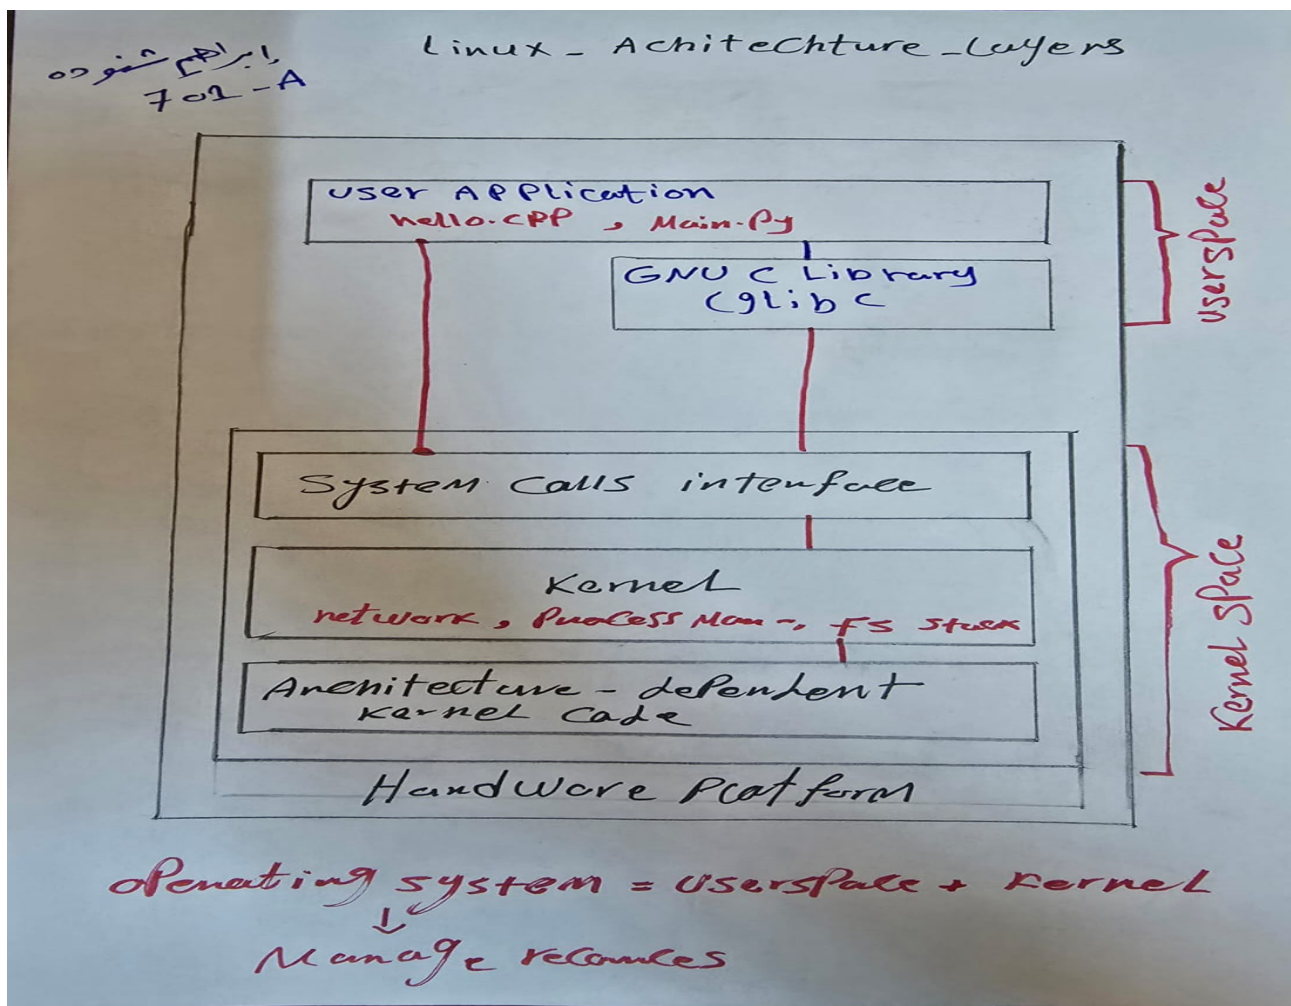 ابراهيم شنوده
701-A
Linux - Achitechture - Layers
User Application
hello.cpp , Main.py
GNU C Library
(glibc
userspace
System calls interface
Kernel
network, Process Man -, FS stack
Architecture - dependent
Kernel Code
Kernel space
Hardware Platform
operating system = userspace + Kernel
Manage